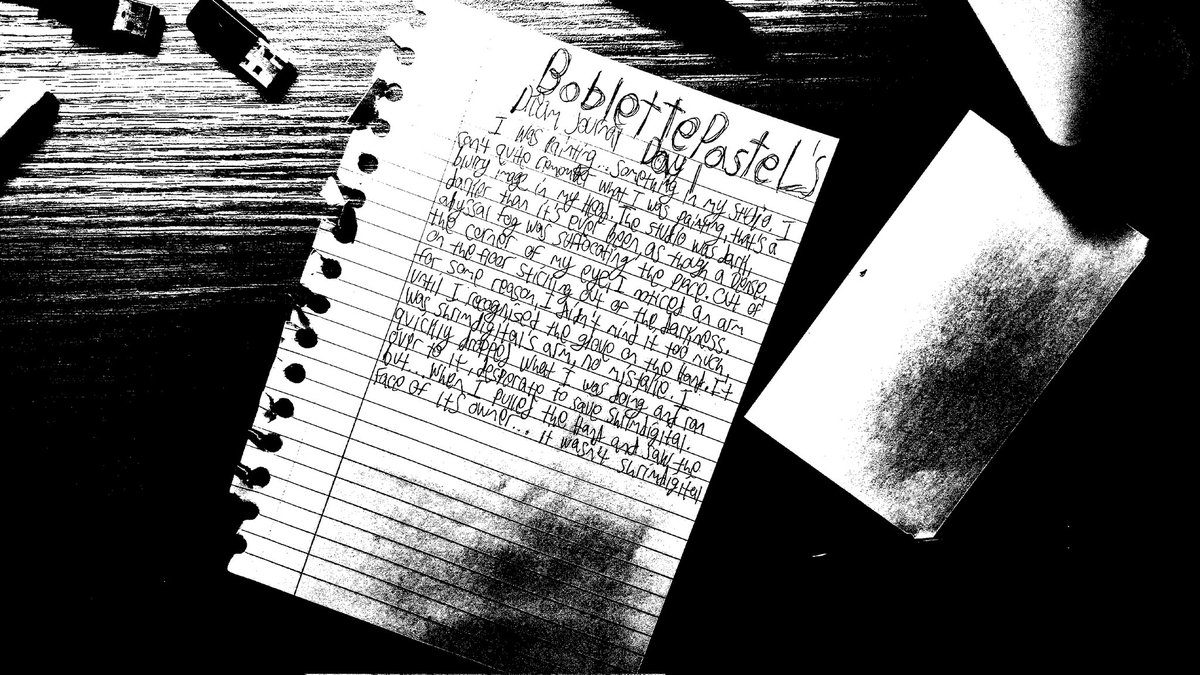 BoblettePastel's
Dream Journal
Day 1
I was painting... something in my studio. I
can't quite remember what I was painting, that's a
blurry image in my head. The studio was dark,
darker than it's ever been as though a dense
abyssal fog was suffocating the place. Out of
the corner of my eye, I noticed an arm
on the floor sticking out of the darkness.
for some reason, I didn't mind it too much
until I recognised the glove on the hand. It
was Shrimdigital's arm, no mistake. I
quickly dropped what I was doing and ran
over to it, desperate to save Shrimdigital.
but... when I pulled the hand and saw the
face of its owner... it wasn't Shrimdigital